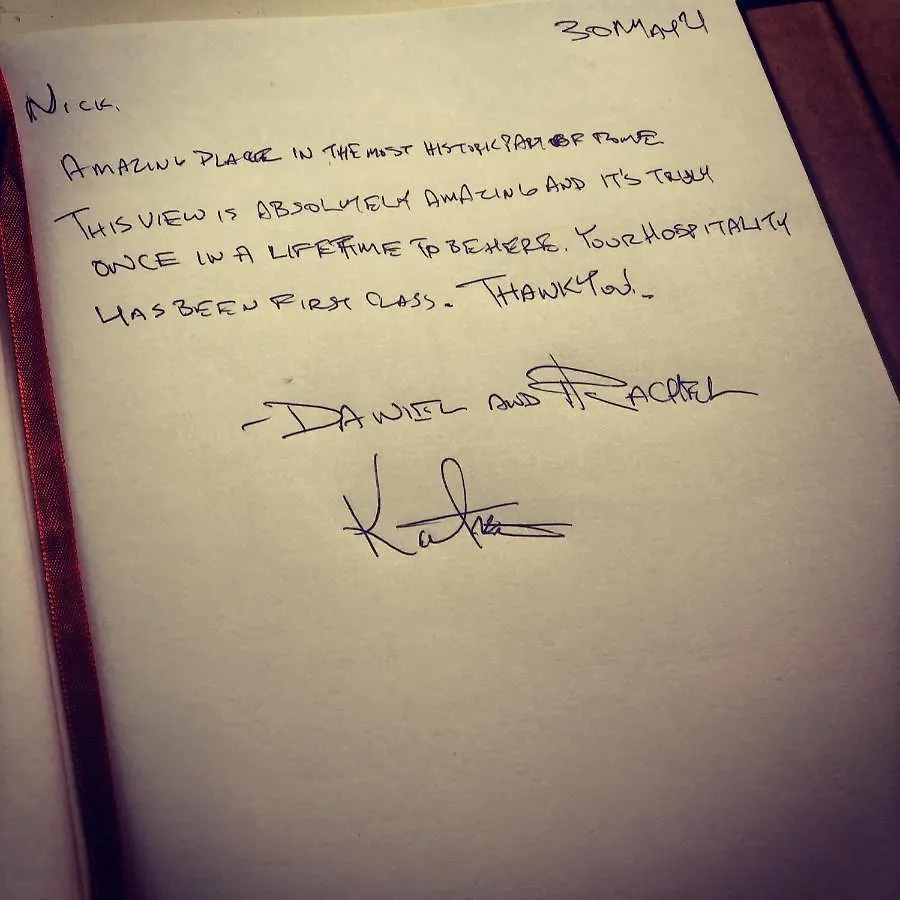 30MAY4
NICK.
AMAZING PLACE IN THE MOST HISTORIC PART OF ROME
THIS VIEW IS ABSOLUTELY AMAZING AND IT'S TRULY
ONCE IN A LIFETIME TO BE HERE. YOUR HOSPITALITY
HAS BEEN FIRST CLASS. THANK YOU!
- DANIEL AND RACHEL